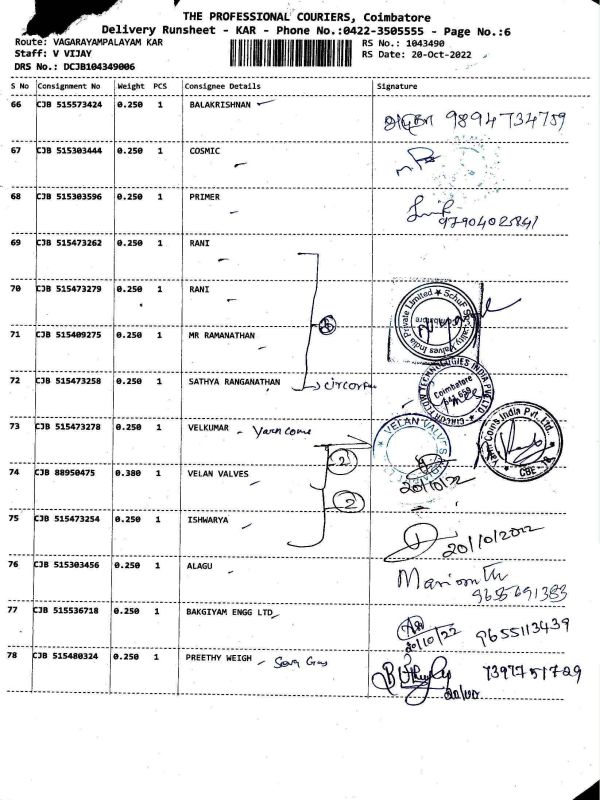 THE PROFESSIONAL COURIERS, Coimbatore
Delivery Runsheet - KAR - Phone No.:0422-3505555 - Page No.:6
Route: VAGARAYAMPALAYAM KAR RS No.: 1043490
Staff: V VIJAY RS Date: 20-Oct-2022
DRS No.: DCJB104349006
S No Consignment No Weight PCS Consignee Details Signature
66 CJB 515573424 0.250 1 BALAKRISHNAN 9894734759
67 CJB 515303444 0.250 1 COSMIC
68 CJB 515303596 0.250 1 PRIMER
97904025841
69 CJB 515473262 0.250 1 RANI
70 CJB 515473279 0.250 1 RANI
71 CJB 515409275 0.250 1 MR RAMANATHAN
72 CJB 515473258 0.250 1 SATHYA RANGANATHAN
73 CJB 515473278 0.250 1 VELKUMAR - Yarn come
VELAN VALVES
74 CJB 88950475 0.380 1 VELAN VALVES
2
20/10/22
2
75 CJB 515473254 0.250 1 ISHWARYA
20/10/2022
76 CJB 515303456 0.250 1 ALAGU
77 CJB 515536718 0.250 1 BAKGIYAM ENGG LTD
20/10/22 9655113439
78 CJB 515480324 0.250 1 PREETHY WEIGH 7397751729